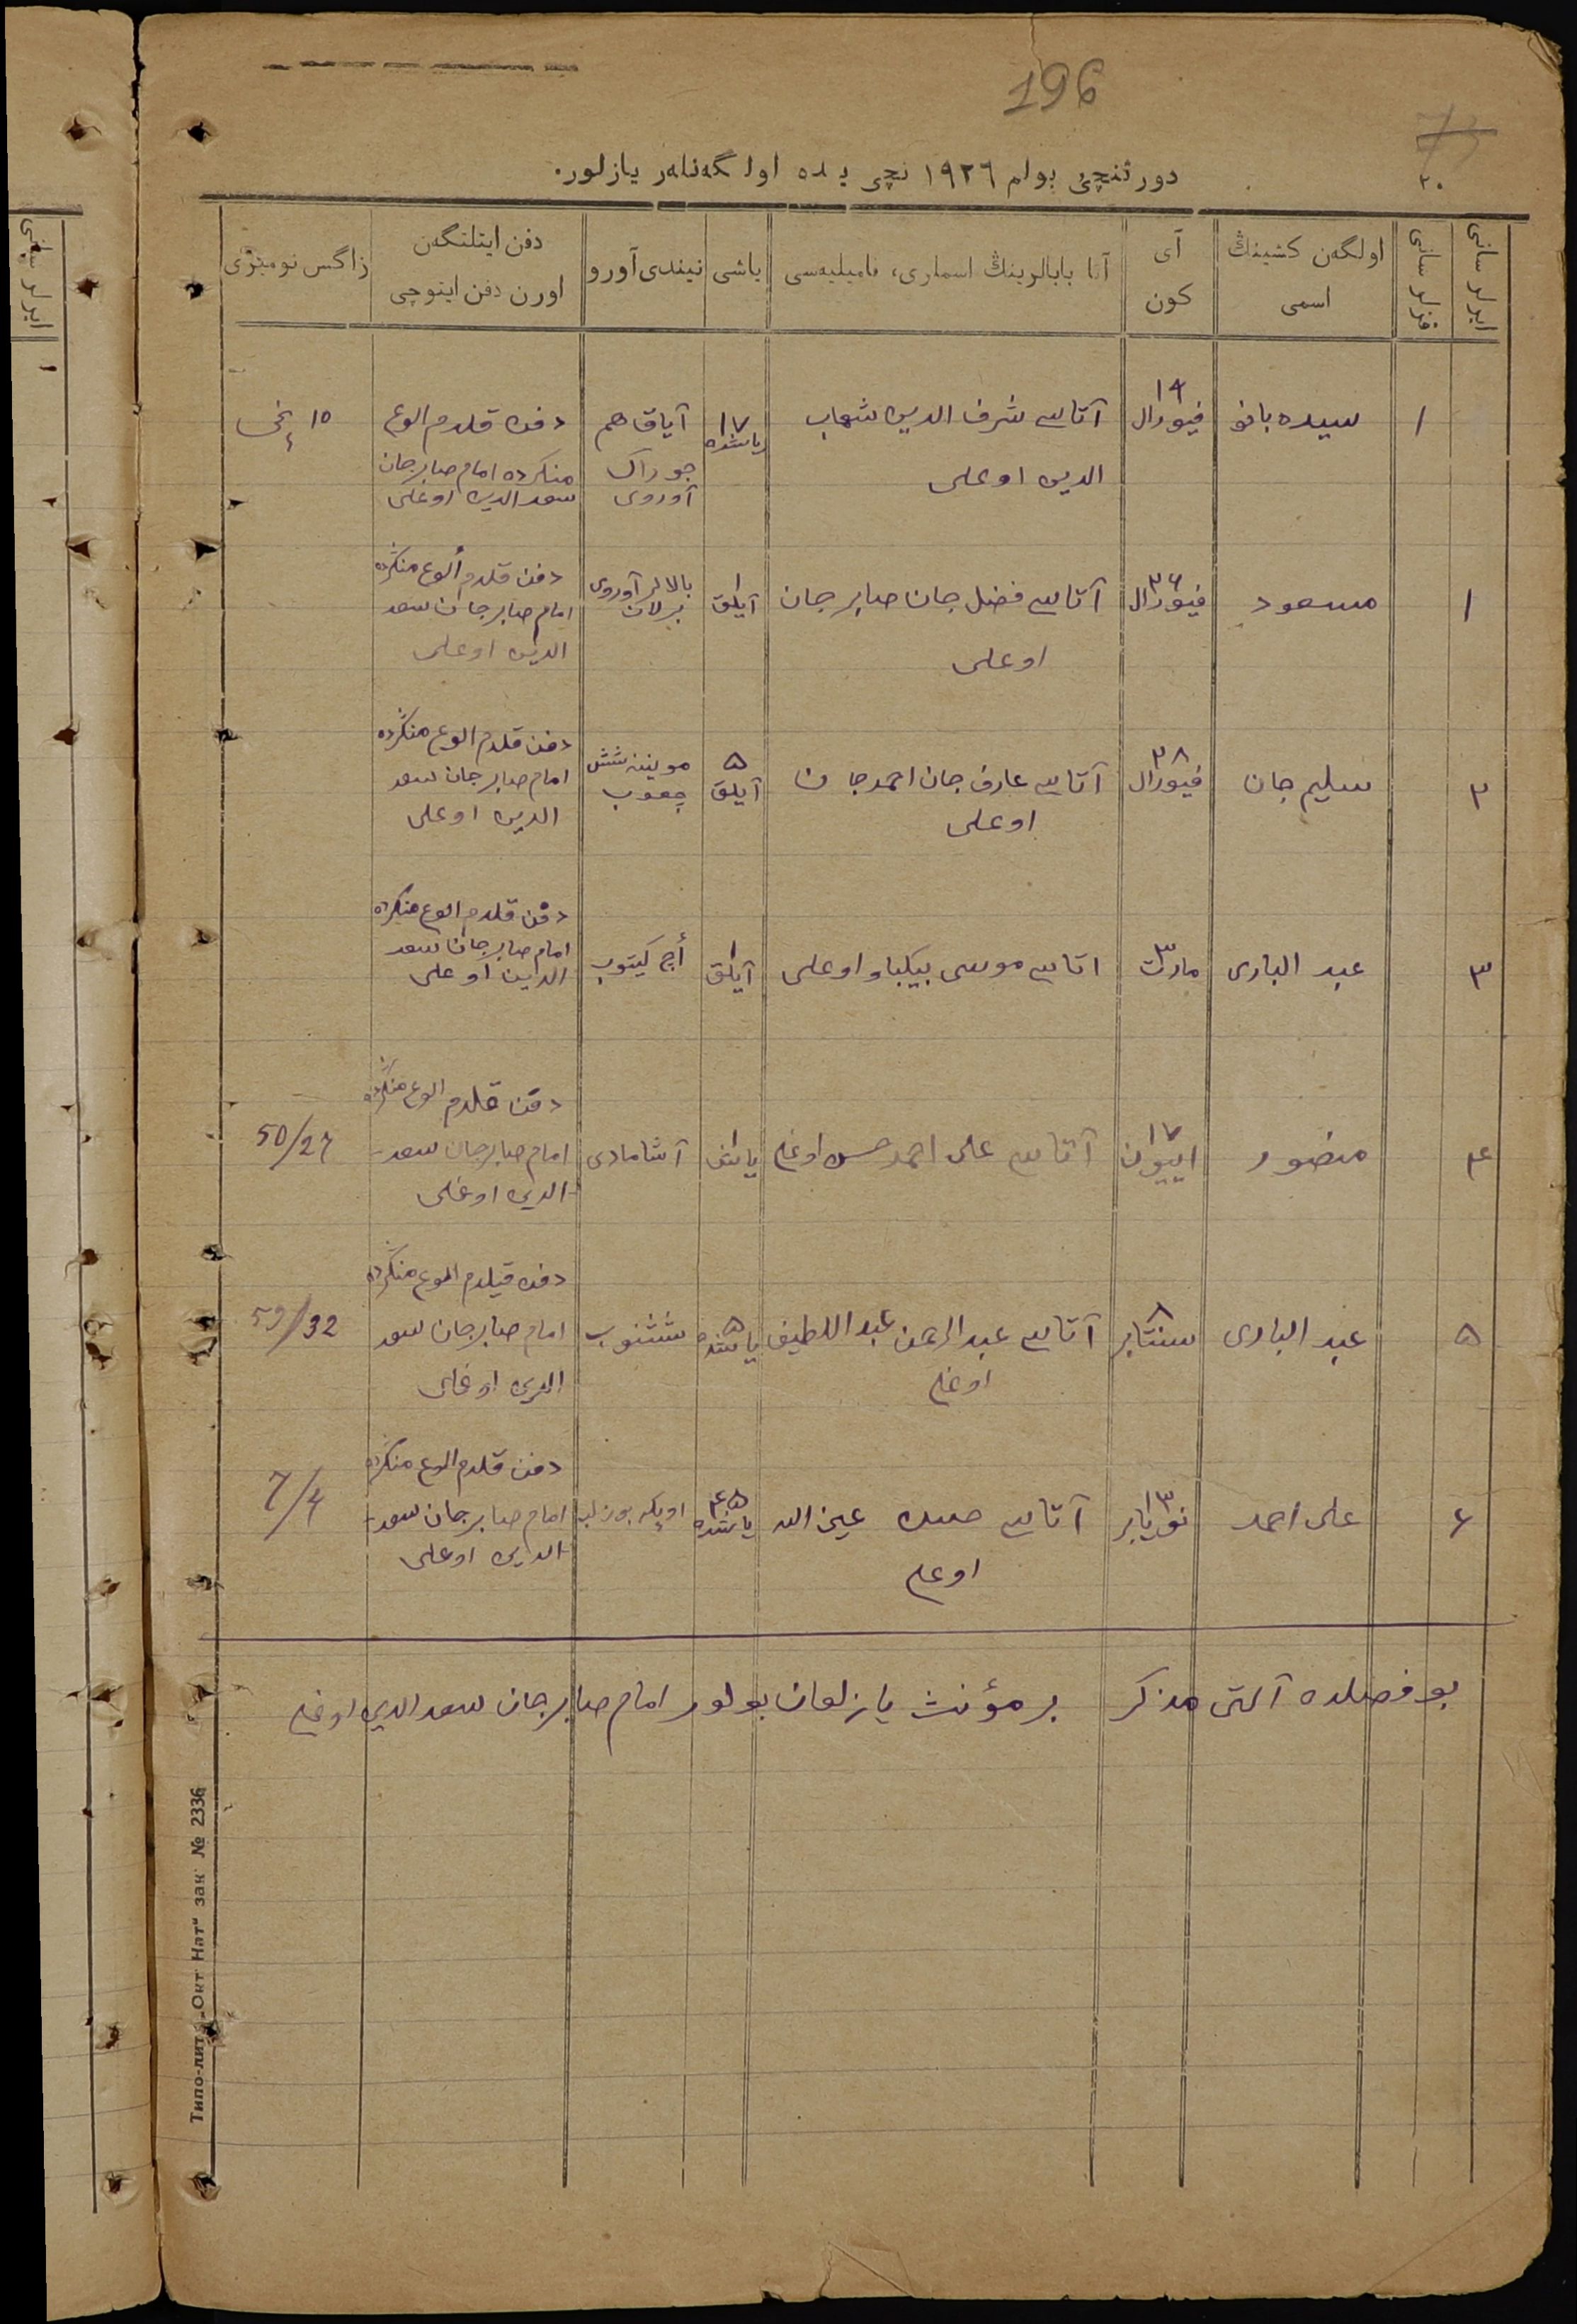 196
73
٢٠
دورتنچی بولم ١٩٢٦ نچی یلده اولگەنلەر یازلور.
ایرلر سانی
قزلر سانی
اولگەن کشینڭ اسمی
آی کون
آتا بابالرینڭ اسملری، فامیلیەسی
یاشی
نیندی آورو
دفن ایتلگەن اورن دفن ایتوچی
زاگس نومیری
١
سیده بانو
١٩ فیورال
آتاسی شرف الدین شهاب
الدین اوغلی
١٧ یاشنده
آیاق هم
جوراک
آوروی
دفن قلدم الوغ
منکرده امام صابرجان
سعد الدین اوغلی
١٥ نچی
١
مسعود
٢٦ فیورال
آتاسی فضل جان صابرجان
اوغلی
١ آیلق
بالالر آوروی
برلان
دفن قلدم ألوغ منگرده
امام صابرجان سعد
الدین اوغلی
٢
سلیم جان
٢٨ فیورال
آتاسی عارف جان احمدجان
اوغلی
٥ آیلق
موینه شش
چعوب
دفن قلدم الوغ منگرده
امام صابرجان سعد
الدین اوغلی
٣
عبد الباری
٣ مارت
اتاسی موسی بیکباو اوغلی
١ آیلق
أچ کیتوب
دفن قلدم الوغ منکرده
امام صابرجان سعد
الدین اوغلی
٤
منصور
١٧ اییون
آتاسی علی احمد حسن اوغلی
١ یاش
آشامادی
دفن قلدم الوغ منگرده
امام صابرجان سعد-
الدین اوغلی
50/27
٥
عبد الباری
٨ سنتابر
آتاسی عبد الرحمن عبد اللطیف
اوغلی
٥ یاشنده
ششنوب
دفن قیلدم الوغ منگرده
امام صابرجان سعد
الدین اوغلی
59/32
٦
علی احمد
١٣ نویابر
آتاسی حسن عین الله
اوغلی
٤٥ یاشنده
اوپکه بوزلب
دفن قلدم الوغ منکرده
امام صابرجان سعد-
الدین اوغلی
7/4
بو فصلده آلتی مذکر بر مؤنث یازلغان بولور امام صابرجان سعد الدین اوغلی
Типо-лит. „Окт Нат“ зак № 2336
ایرلر سانی
١